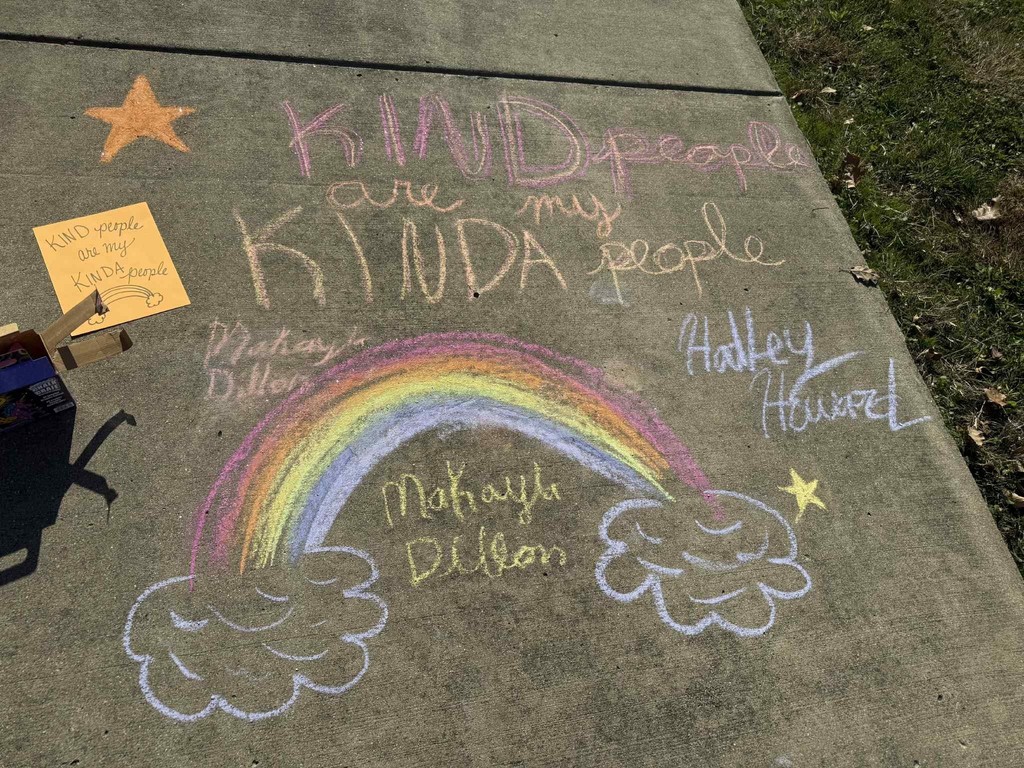 KIND people
are my
KINDA people
KIND people
are my
KINDA people
Makayla
Dillon
Hadley
Howard
Makayla
Dillon